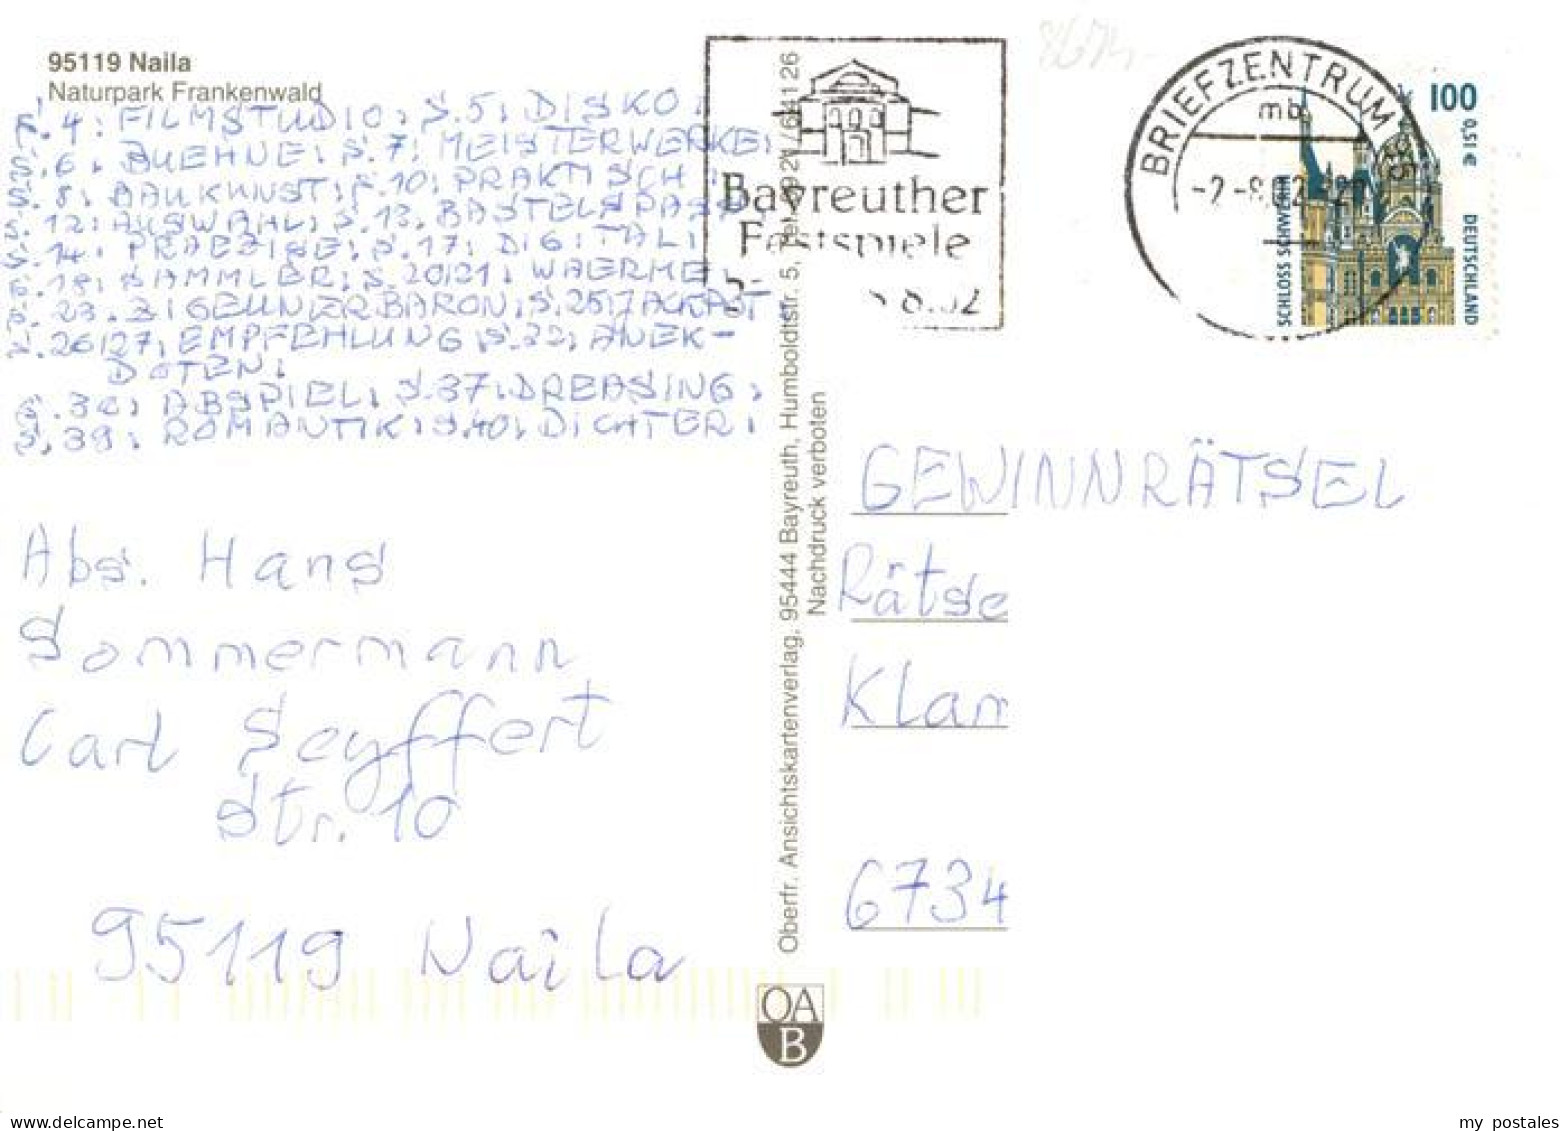 95119 Naila
Naturpark Frankenwald
S. 4: FILMSTUDIO; S. 5; DISKO;
S. 6; BUEHNE; S. 7; MEISTERWERKE;
S. 8; BAUKUNST; S. 10; PRAKTISCH;
S. 12; AUSWAHL; S. 13, BASTELSPASS,
S. 14; PRAEZISE; S. 17; DIGITAL;
S. 18; SAMMLER; S. 20/21; WAERME,
S. 23, ZIGEUNERBARON; S. 25;
S. 26/27; EMPFEHLUNG, S. 32; ANEK-
DOTEN;
ABSPIEL; S. 37; DREASING;
S. 39; ROMANTIK; S. 40; DICHTER;
Abs. Hans
Sommermann
Carl Seyffert
Str. 10
95119 Naila
Oberfr. Ansichtskartenverlag, 95444 Bayreuth, Humboldtstr. 5,
Nachdruck verboten
OA
B
Bayreuther
Festspiele
8.02
BRIEFZENTRUM 95
mb
-2.-8.02-
100
0,51 €
SCHLOSS SCHWERIN
DEUTSCHLAND
GEWINNRÄTSEL
Rätse
Klan
6734
my postales